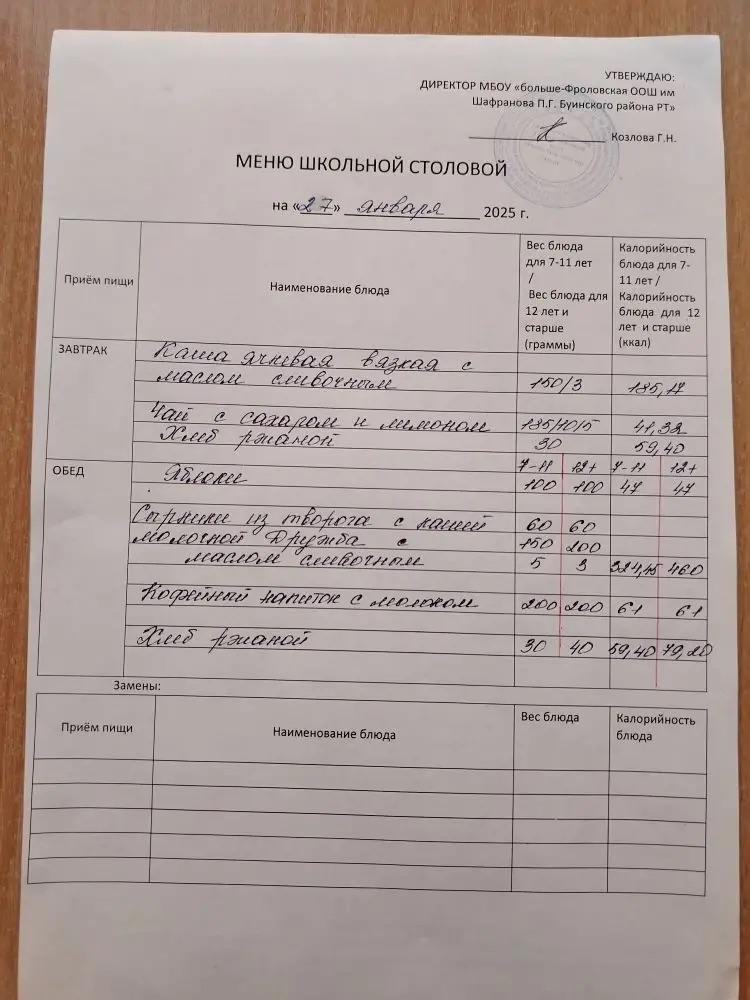 УТВЕРЖДАЮ:
ДИРЕКТОР МБОУ «больше-Фроловская ООШ им
Шафранова П.Г. Буинского района РТ»
Козлова Г.Н.
МЕНЮ ШКОЛЬНОЙ СТОЛОВОЙ
на «27» января 2025 г.
Приём пищи
Наименование блюда
Вес блюда
для 7-11 лет
/
Вес блюда для
12 лет и
старше
(граммы)
Калорийность
блюда для 7-
11 лет /
Калорийность
блюда для 12
лет и старше
(ккал)
ЗАВТРАК
Каша ячневая вязкая с
маслом сливочным 150/3 185,17
Чай с сахаром и лимоном 185/10/5 41,32
Хлеб ржаной 30 59,40
ОБЕД
7-11 12+ 7-11 12+
Яблоки 100 100 47 47
Сырники из творога с кашей 60 60
молочной Дружба с 150 200
маслом сливочным 5 3 324,45 460
Кофейный напиток с молоком 200 200 61 61
Хлеб ржаной 30 40 59,40 79,20
Замены:
Приём пищи
Наименование блюда
Вес блюда
Калорийность
блюда